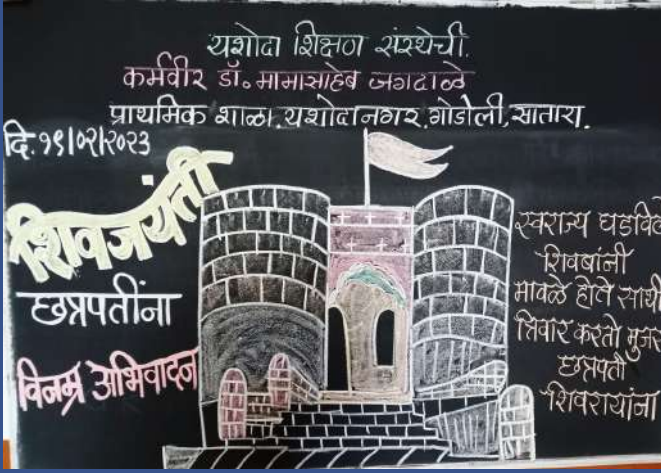 यशोदा शिक्षण संस्थेची.
कर्मवीर डॉ. मामासाहेब जगदाळे
प्राथमिक शाळा, यशोदानगर, गोडोली, सातारा.
दि. १९/०२/२०२३
शिवजयंती
छत्रपतींना
विनम्र अभिवादन
स्वराज्य घडविले
शिवबांनी
मावळे होते साथी
त्रिवार करतो
छत्रपती
शिवरायांना